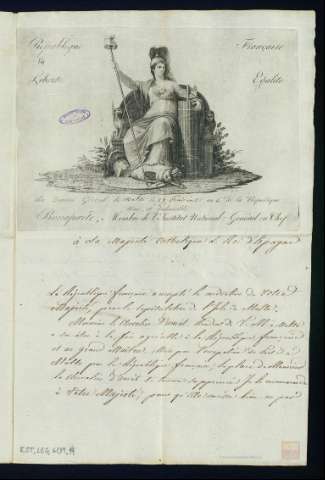 République Française
Liberté Égalité
Au Quartier Général de Malte le 27 Prairial an 6 de la République
une et Indivisible
Bonaparte, Membre de l'Institut National, Général en Chef
à Sa Majesté Catholique le Roi d'Espagne
La République française a accepté la médiation de Votre
Majesté, pour la capitulation de l'Isle de Malte.
Monsieur le Chevalier d'Amat Résident de V. M. à Malte
a su être à la fois agréable à la République française
et au grand Maître. Mais par l'occupation du Port de
Malthe par la République française, la place de Monsieur
le Chevalier d'Amat se trouve supprimée. Je le recommande
à Votre Majesté, pour qu'Elle veuille bien ne pas